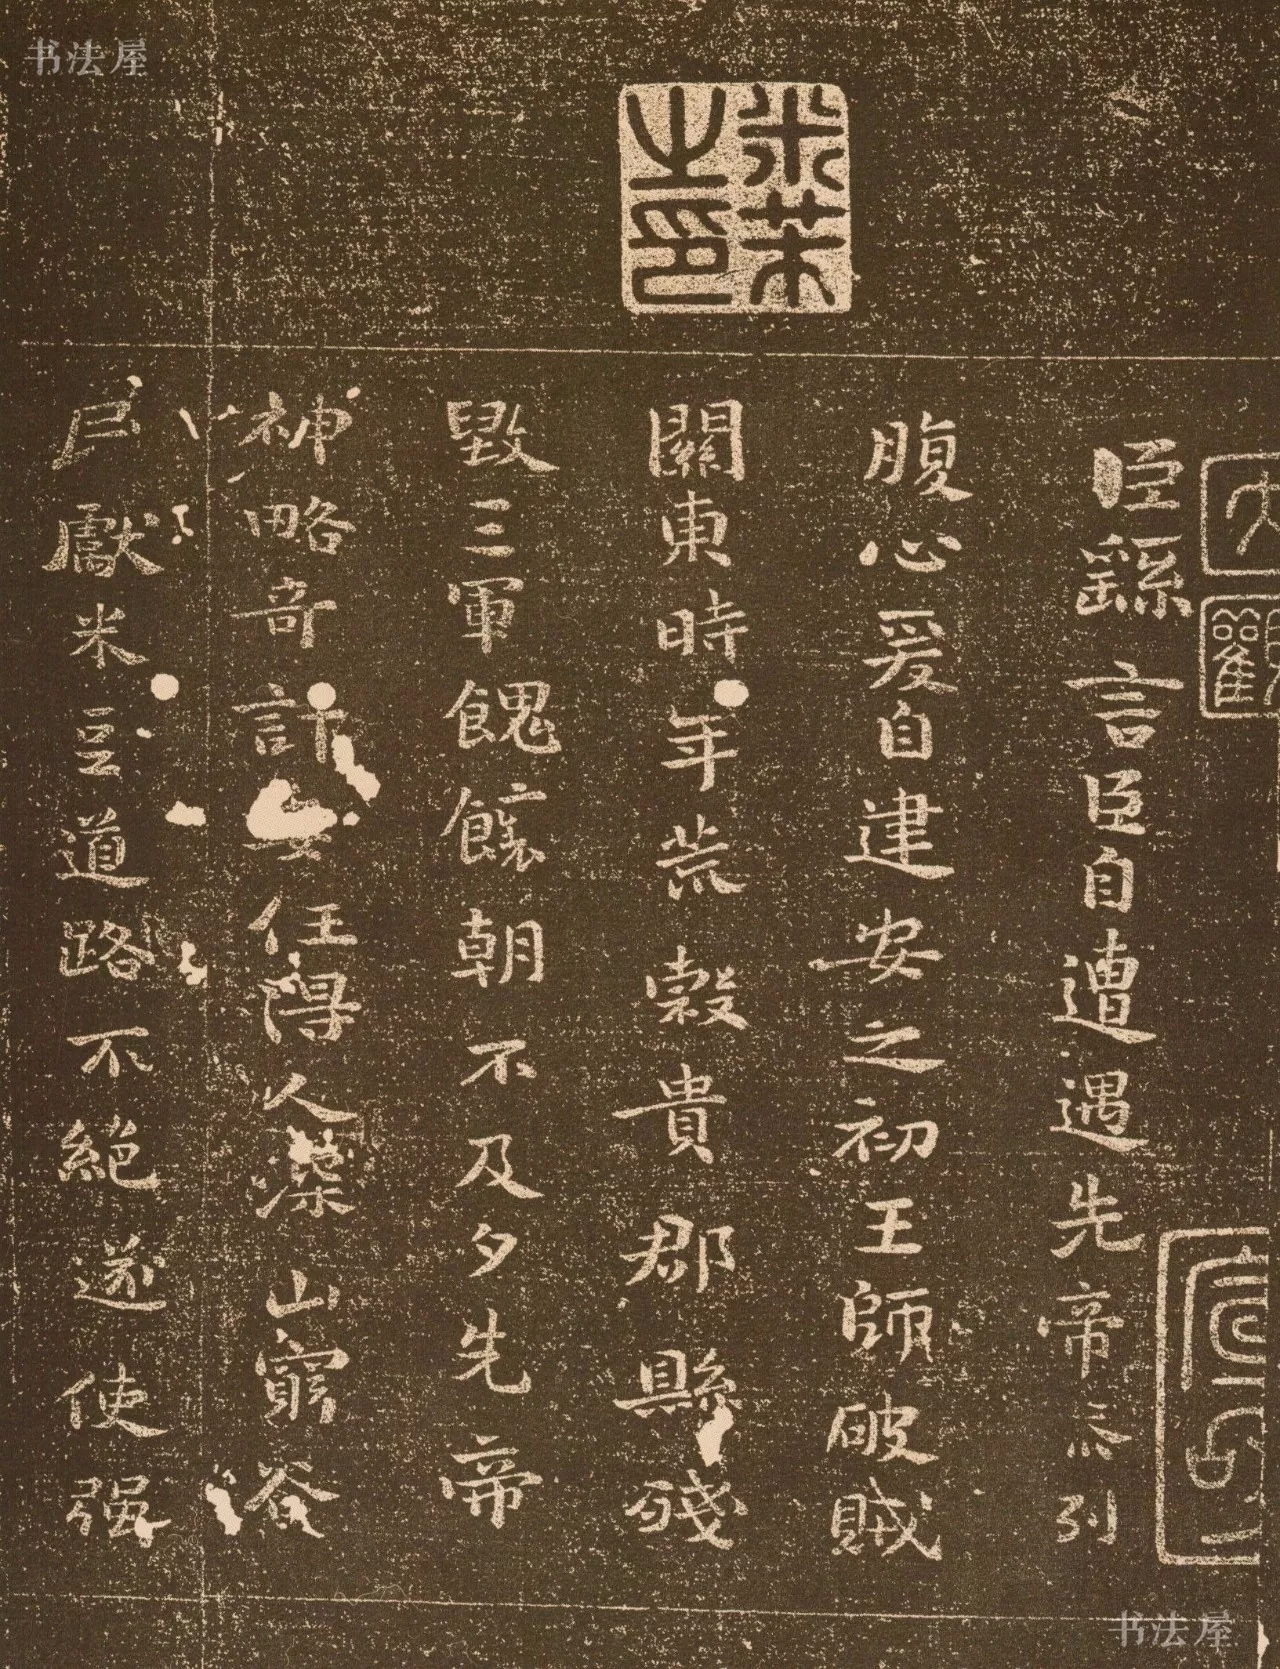 书法屋
米芾
之印
大觀
臣繇言臣自遭遇先帝忝列
腹心爰自建安之初王師破賊
關東時年荒穀貴郡縣殘
毀三軍餽饟朝不及夕先帝
神略奇計委任得人深山窮谷
民獻米豆道路不絕遂使强
书法屋